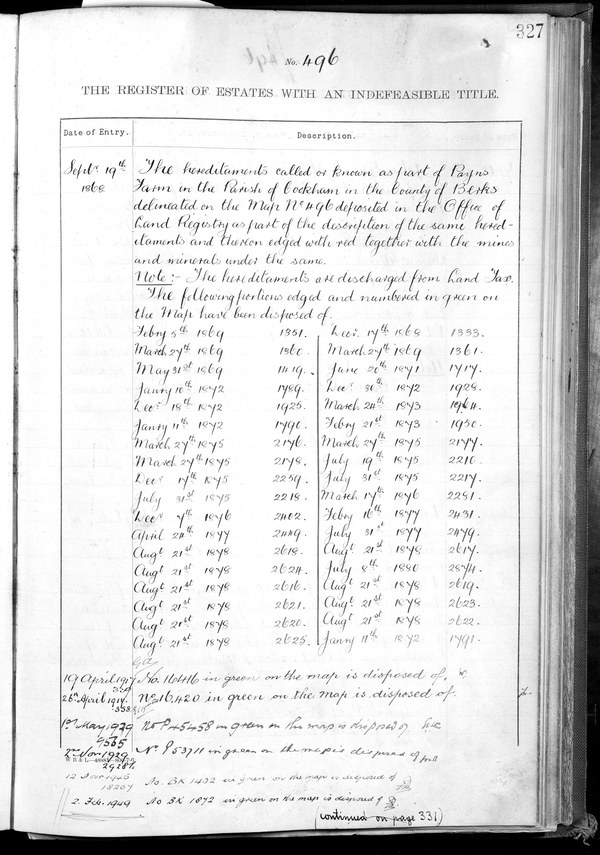 327
No. 496
THE REGISTER OF ESTATES WITH AN INDEFEASIBLE TITLE.
Date of Entry. Description.
Septr. 19th 1868 The hereditaments called or known as part of Payns
Farm in the Parish of Cookham in the County of Berks
delineated on the Map No 496 deposited in the Office of
Land Registry as part of the description of the same hered-
itaments and thereon edged with red together with the mines
and minerals under the same.
Note:- The hereditaments are discharged from Land Tax.
The following portions edged and numbered in green on
the Map have been disposed of.
Febry 5th 1869 1351. Decr. 17th 1868 1333.
March 27th 1869 1360. March 27th 1869 1361.
May 31st 1869 1419. June 20th 1871 1717.
Janry 10th 1872 1789. Decr. 30th 1872 1928.
Decr. 18th 1872 1925. March 24th 1873 1964.
Janry 11th 1872 1790. Febry 21st 1873 1950.
March 27th 1875 2176. March 27th 1875 2177.
March 27th 1875 2178. July 19th 1875 2210.
Decr. 17th 1875 2259. July 31st 1875 2217.
July 31st 1875 2218. March 17th 1876 2281.
Decr. 7th 1876 2402. Febry 16th 1877 2431.
April 24th 1877 2449. July 31st 1877 2479.
Augt. 21st 1878 2618. Augt. 21st 1878 2617.
Augt. 21st 1878 2624. July 8th 1880 2874.
Augt. 21st 1878 2616. Augt. 21st 1878 2619.
Augt. 21st 1878 2621. Augt. 21st 1878 2623.
Augt. 21st 1878 2620. Augt. 21st 1878 2622.
Augt. 21st 1878 2625. Janry 11th 1872 1791.
19 April 1917 No. 16416 in green on the map is disposed of,
26th April 1917. No 16,420 in green on the map is disposed of.
1st May 1929 No P45458 in green on the map is disposed of
2nd Nov 1929 No. P53711 in green on the map is disposed of
12 Nov 1946 No. BK 1402 in green on the map is disposed of
2 Feb. 1949 No BK 1872 in green on the map is disposed of
(continued on page 331)